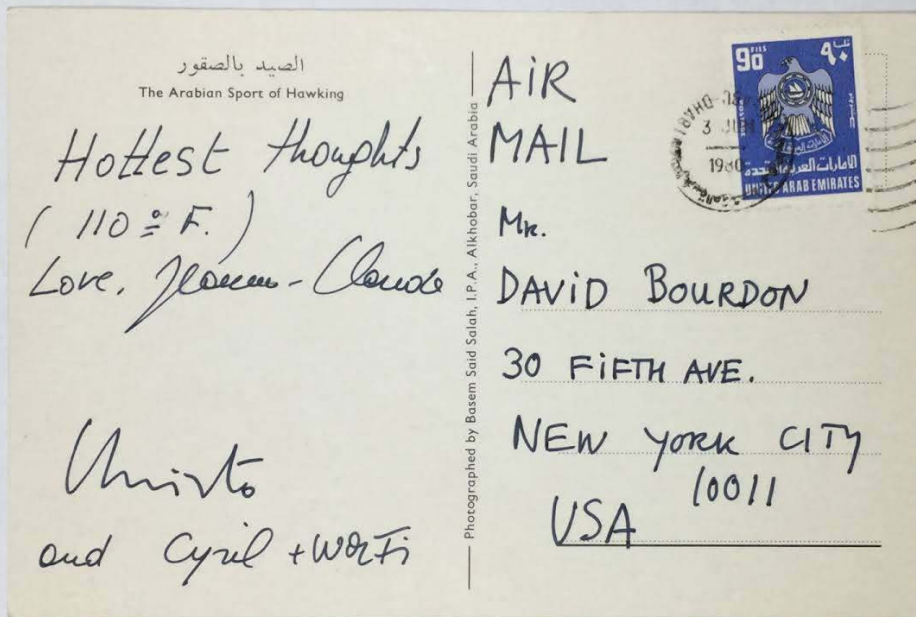 الصيد بالصقور
The Arabian Sport of Hawking
Hottest thoughts
( 110 º F. )
Love, Jeanne-Claude
Christo
and Cyril + Wolfi
Photographed by Basem Said Salah, I.P.A., Alkhobar, Saudi Arabia
AIR
MAIL
Mr.
DAVID BOURDON
30 FIFTH AVE.
NEW YORK CITY
10011
USA
90 FILS
٩٠
الامارات العربية المتحدة
UNITED ARAB EMIRATES
3 JUN
1980